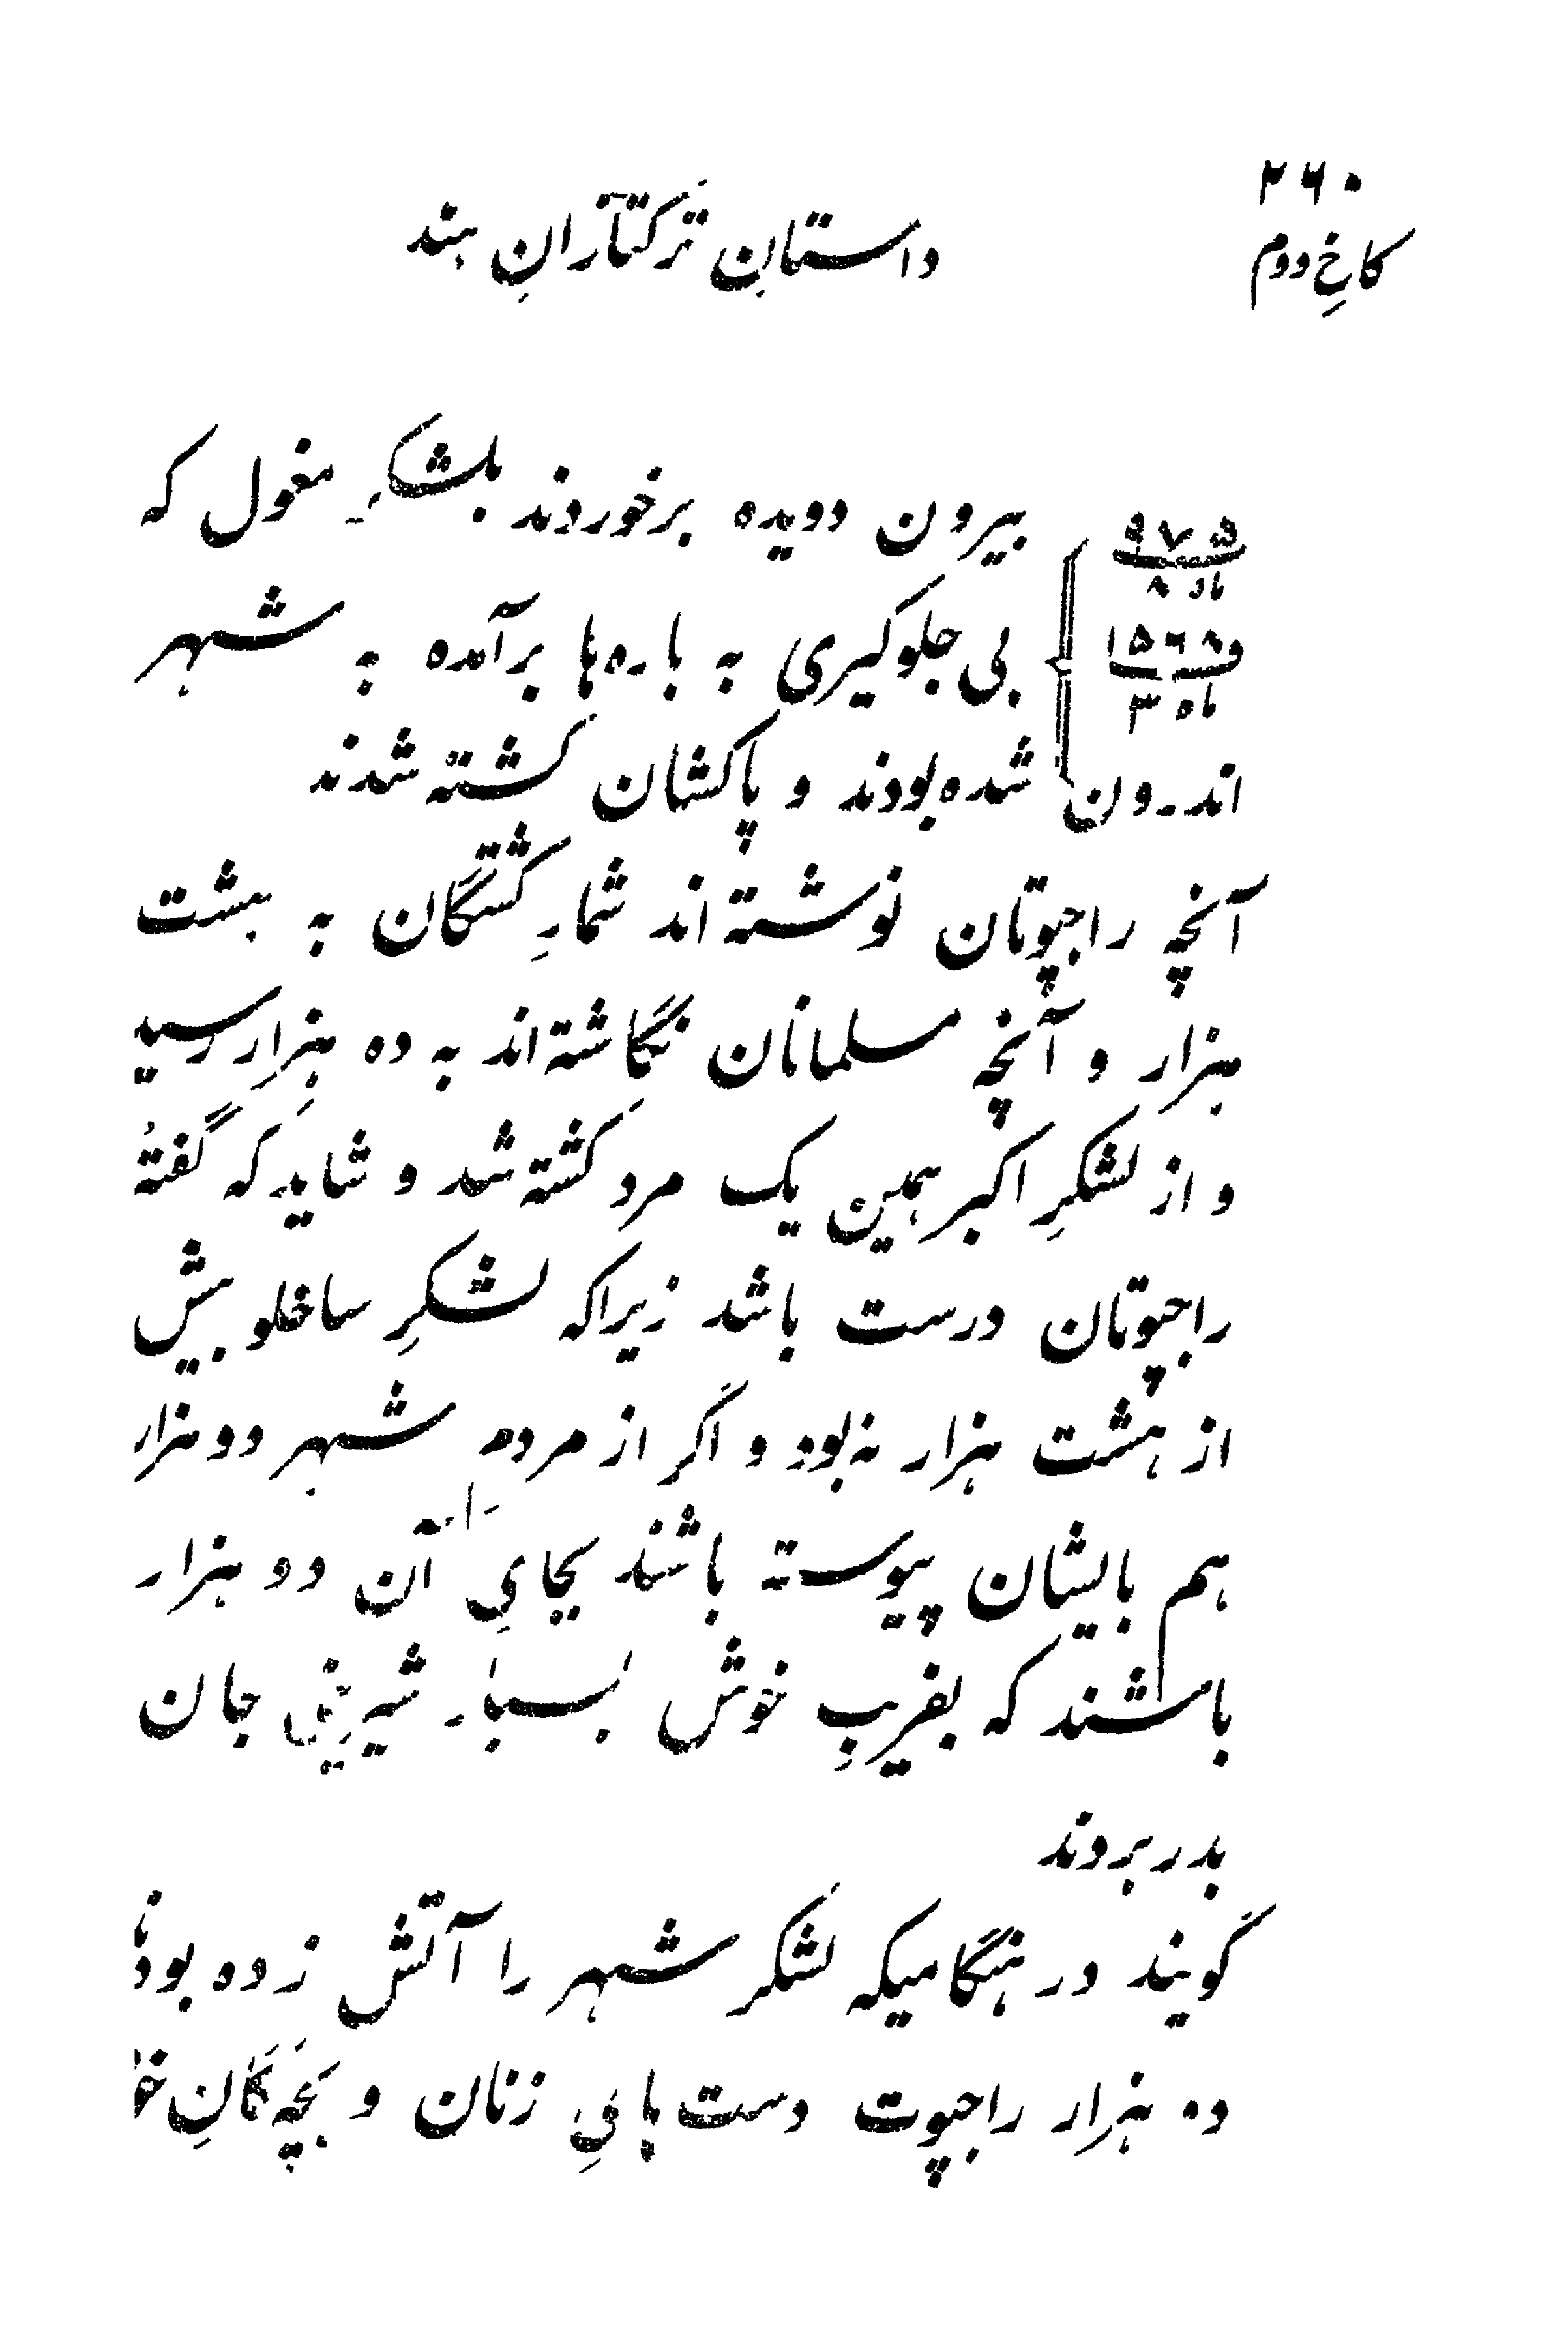 ۲۶۰
کاخِ دوم
داستانِ تَرکتازانِ هند
بیرون دویده برخوردند بلشکرِ مغول که
۹۷۵
ماه ۸
۱۵۶۸
ماه ۳
بی جلوگیری به باره‌ها برآمده به شهر
اندرون شده بودند و پاکشان کشته شدند
آنچه راجپوتان نوشته‌اند شمارِ کشتگان به هشت
هزار و آنچه مسلمانان نگاشته‌اند به ده هزار رسید
و از لشکرِ اکبر همین یک مرد کشته شد و شاید که گفتهٔ
راجپوتان درست باشد زیراکه لشکرِ ساخلو بیش
از هشت هزار نه بود و اگر از مردمِ شهر دو هزار
هم بایشان پیوسته باشند بجایِ آن دو هزار
باشند که بفریبِ خوش بسیار شیرینی جان
بدر بردند
گویند در هنگامیکه لشکر شهر را آتش زده بود
ده هزار راجپوت دست پایِ زنان و بچه‌گانِ